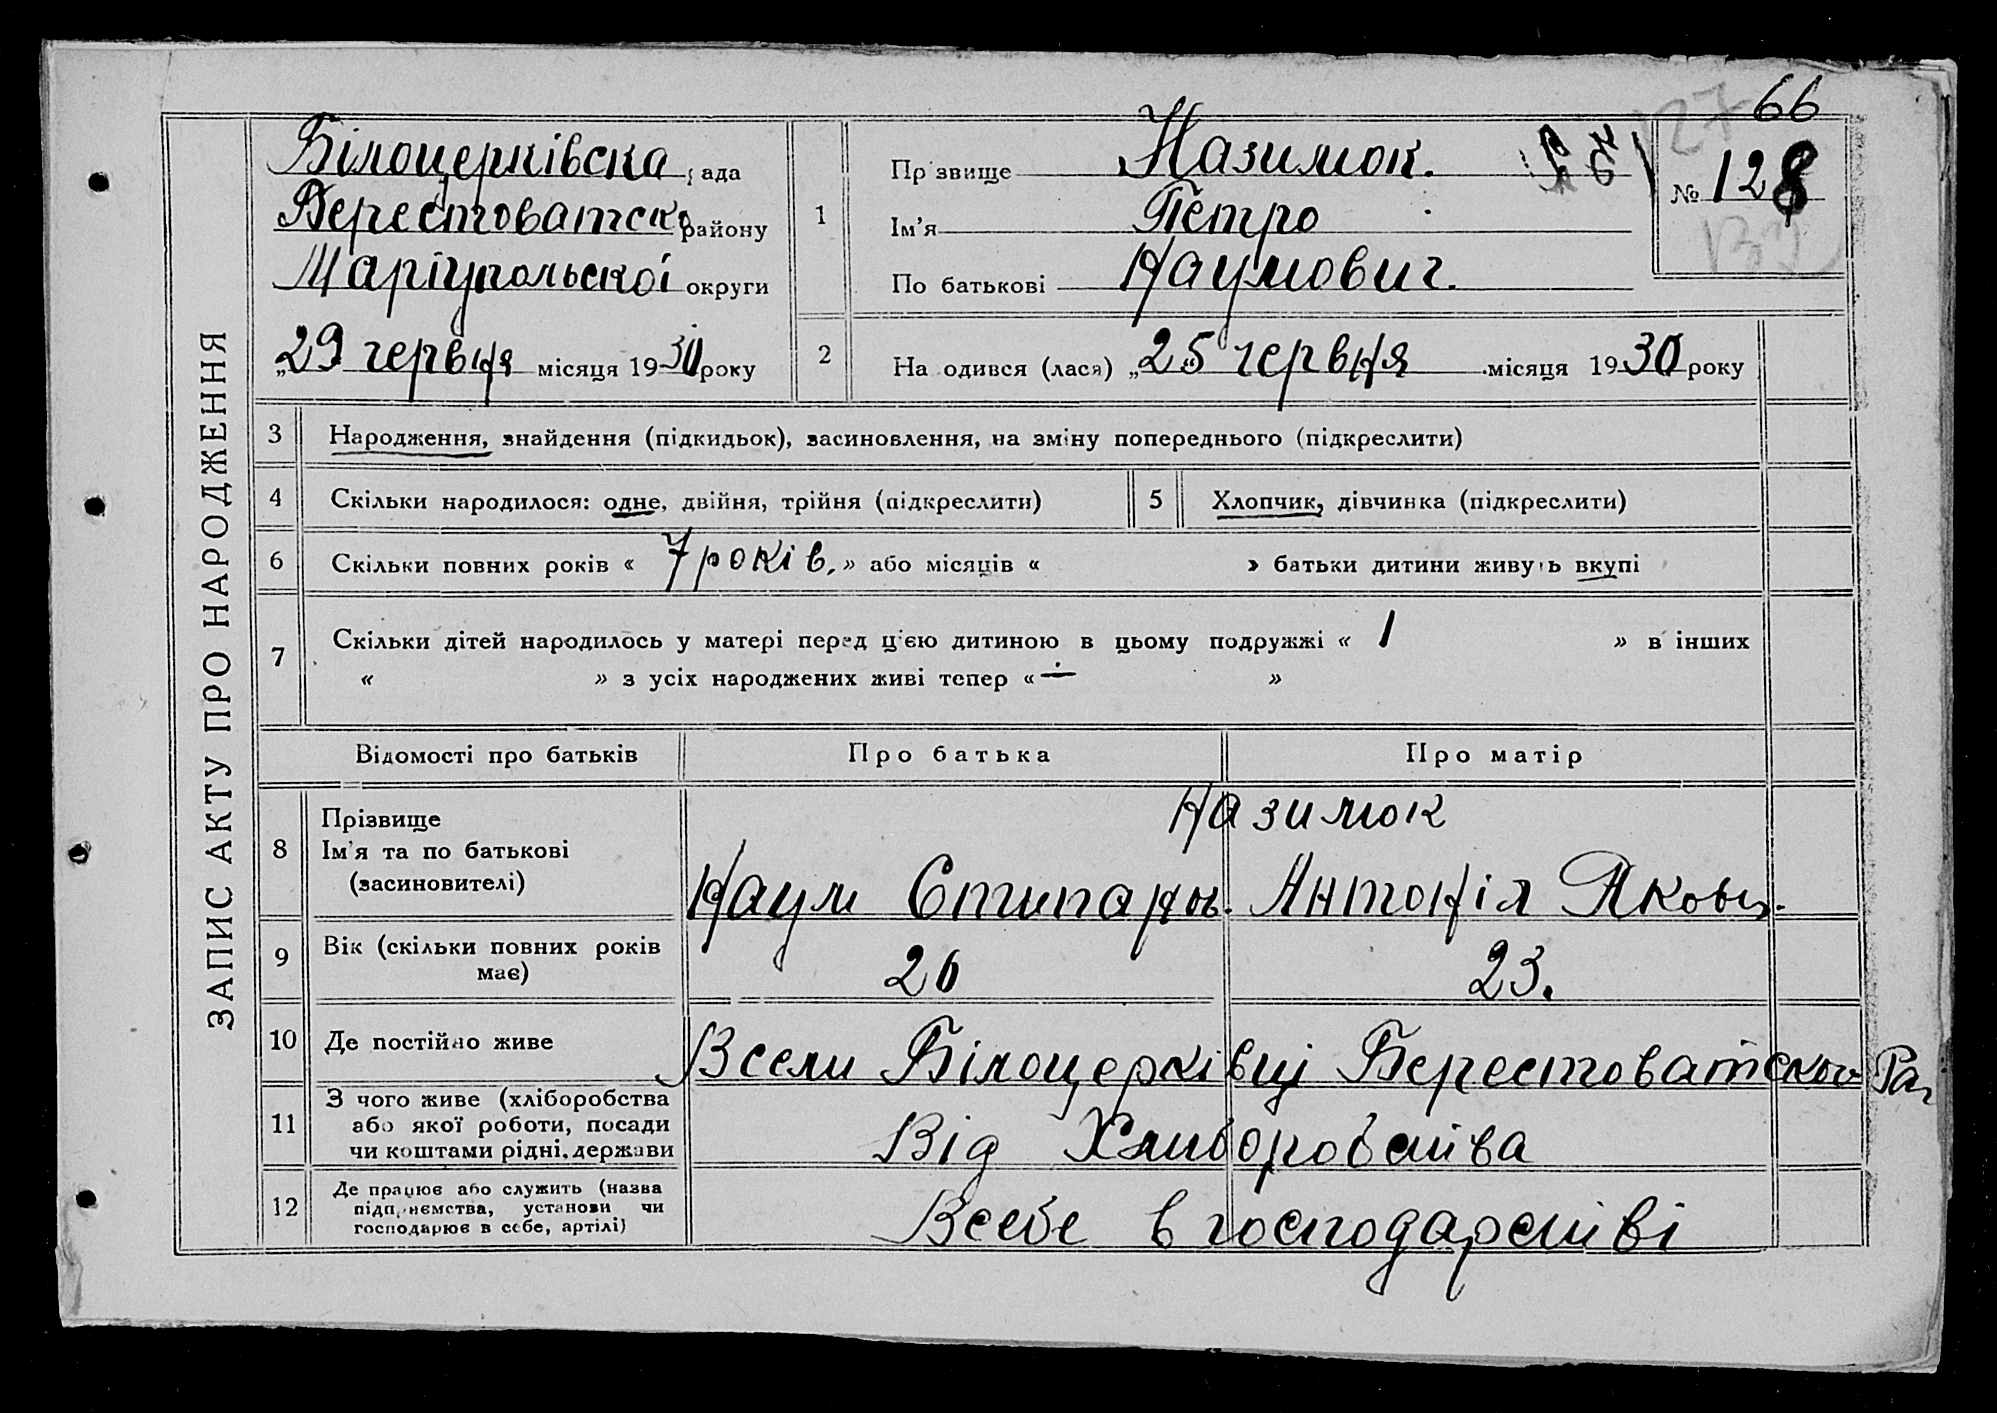 66
127
ЗАПИС АКТУ ПРО НАРОДЖЕННЯ
Білоцерківска рада
Берестоватск району
Маріупольскоі округи
„29 червня місяця 1930 року
1
Прізвище Назимок.
Ім'я Петро
По батькові Наумович.
№ 128
2
На одився (лася) „25 червня місяця 1930 року
3 Народження, знайдення (підкидьок), засиновлення, на зміну попереднього (підкреслити)
4 Скільки народилося: одне, двійня, трійня (підкреслити) 5 Хлопчик, дівчинка (підкреслити)
6 Скільки повних років « 7 років, » або місяців « » батьки дитини живуть вкупі
7 Скільки дітей народилось у матері перед цією дитиною в цьому подружжі « 1 » в інших
« » з усіх народжених живі тепер « — »
Відомості про батьків Про батька Про матір
Назимок
8 Прізвище
Ім'я та по батькові
(засиновителі)
Наум Антонія Яковл.
9 Вік (скільки повних років
має)
26 23.
10 Де постійно живе Всели Білоцерківці Берестоватского Ра
11 З чого живе (хліборобства
або якої роботи, посади
чи коштами рідні, держави
Від Хлиборобства
12 Де працює або служить (назва
підприємства, установи чи
господарює в себе, артілі)
Всебе в господарстві